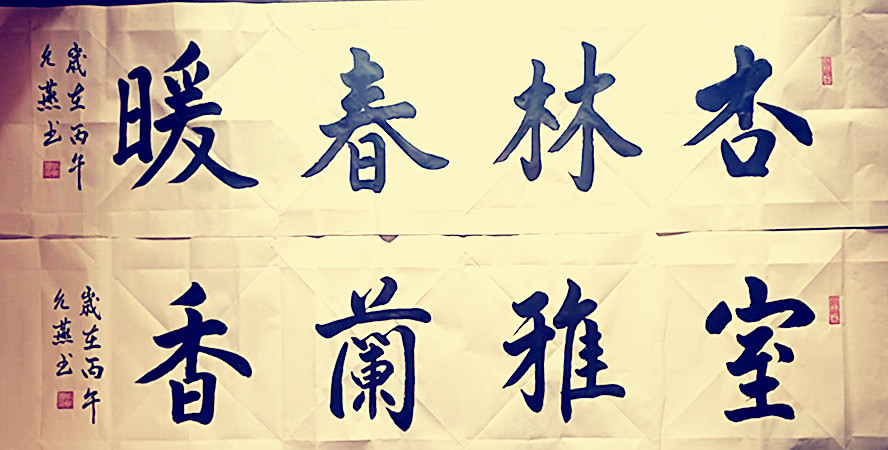 杏林春暖
歲在丙午
允燕书
室雅蘭香
歲在丙午
允燕书